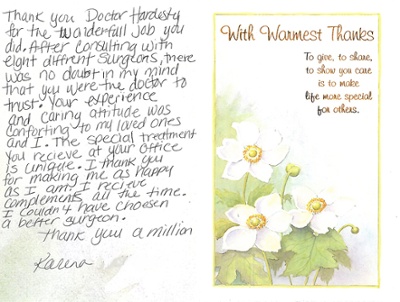 Thank you Doctor Hardesty
for the wanderfull job you
did. After consulting with
eight diffrent surgeons, there
was no doubt in my mind
that you were the doctor to
trust. Your experience
and caring attitude was
comforting to my loved ones
and I. The special treatment
you recieve at your office
is unique. I thank you
for making me as happy
as I am, I recieve
complements all the time.
I couldn't have choosen
a better surgeon.
Thank you a million
Karena
With Warmest Thanks
To give, to share,
to show you care
is to make
life more special
for others.